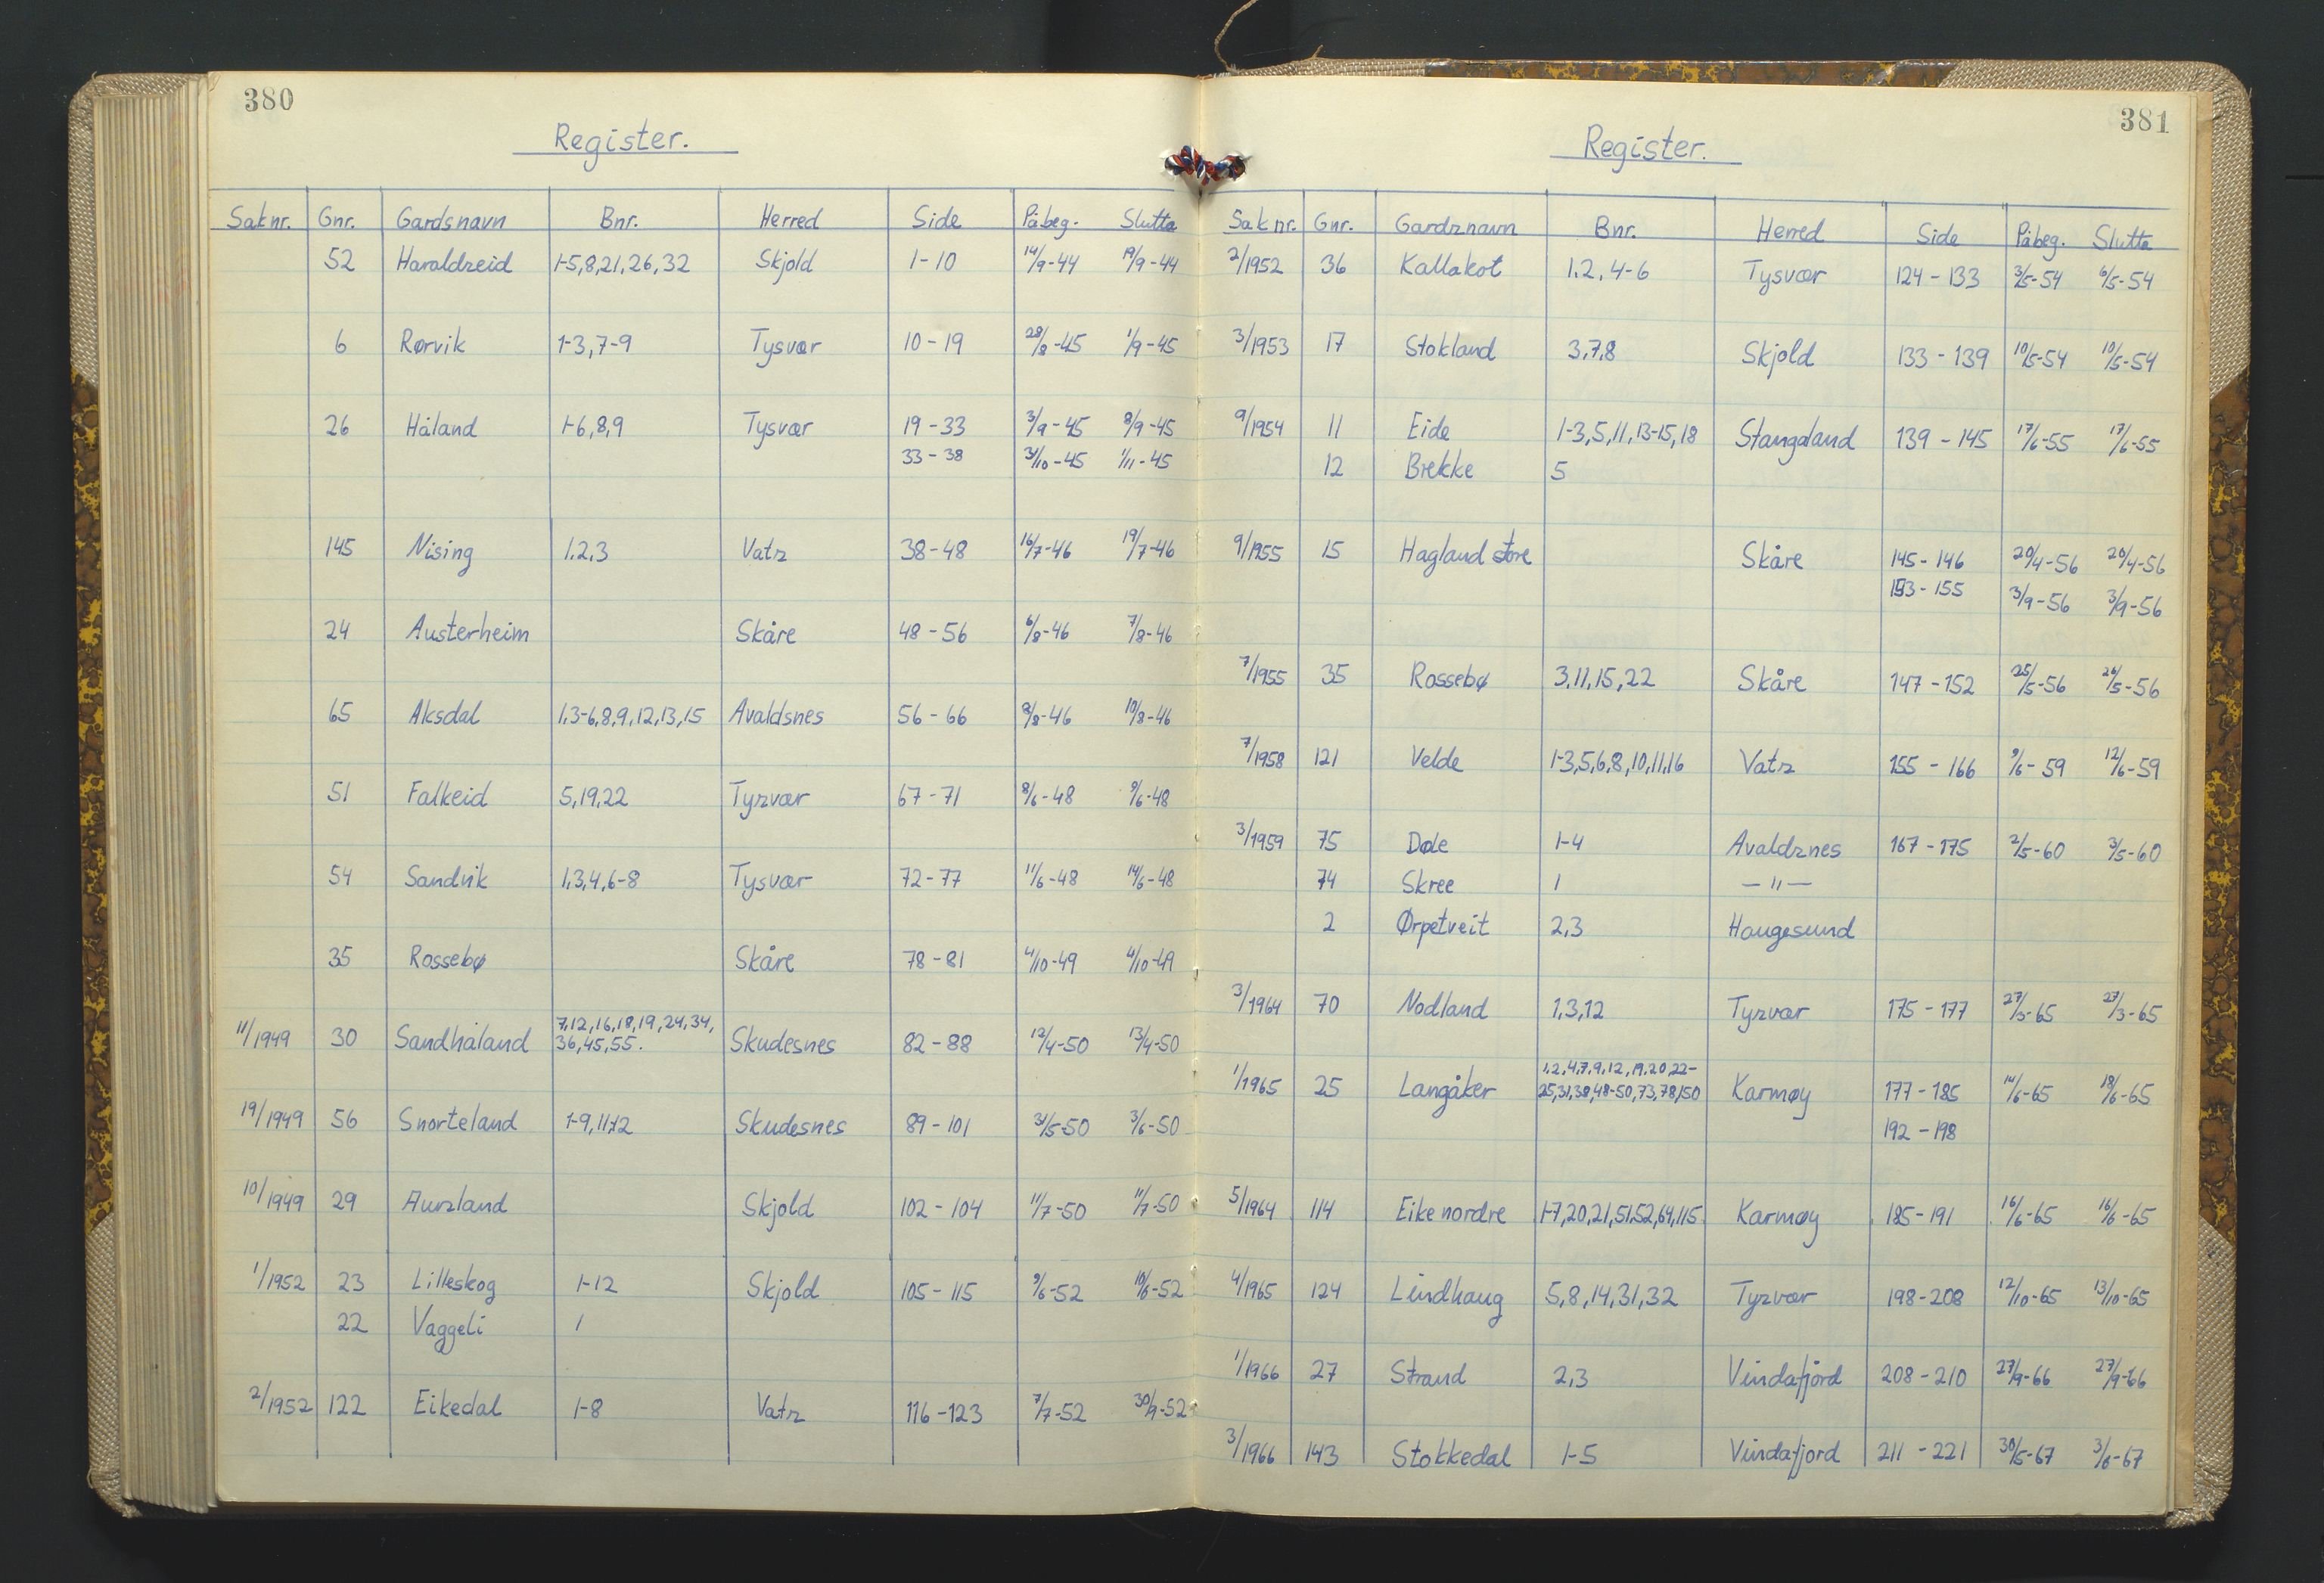 380
Register.
Sak nr. Gnr. Gardsnavn Bnr. Herred Side Påbeg. Slutta
52 Haraldseid 1-5,8,21,26,32 Skjold 1-10 14/9-44 19/9-44
6 Rørvik 1-3,7-9 Tysvær 10-19 28/8-45 1/9-45
26 Håland 1-6,8,9 Tysvær 19-33 3/9-45 8/9-45
33-38 31/10-45 1/11-45
145 Nising 1,2,3 Vats 38-48 16/7-46 19/7-46
24 Austerheim Skåre 48-56 6/8-46 7/8-46
65 Aksdal 1,3-6,8,9,12,13,15 Avaldsnes 56-66 8/8-46 10/8-46
51 Falkeid 5,19,22 Tysvær 67-71 8/6-48 9/6-48
54 Sandvik 1,3,4,6-8 Tysvær 72-77 11/6-48 14/6-48
35 Rossebø Skåre 78-81 4/10-49 4/10-49
11/1949 30 Sandhåland 7,12,16,18,19,24,34,
36,45,55. Skudesnes 82-88 12/4-50 13/4-50
19/1949 56 Snorteland 1-9,11,12 Skudesnes 89-101 31/5-50 3/6-50
10/1949 29 Aursland Skjold 102-104 11/7-50 11/7-50
1/1952 23 Lilleskog 1-12 Skjold 105-115 9/6-52 10/6-52
22 Vaggeli 1
2/1952 122 Eikedal 1-8 Vats 116-123 7/7-52 30/9-52
381
Register.
Sak nr. Gnr. Gardsnavn Bnr. Herred Side Påbeg. Slutta
2/1952 36 Kallakot 1,2,4-6 Tysvær 124-133 3/5-54 6/5-54
3/1953 17 Stokland 3,7,8 Skjold 133-139 10/5-54 10/5-54
9/1954 11 Eide 1-3,5,11,13-15,18 Stangaland 139-145 17/6-55 17/6-55
12 Brekke 5
9/1955 15 Hagland store Skåre 145-146 20/4-56 20/4-56
153-155 3/9-56 3/9-56
7/1955 35 Rossebø 3,11,15,22 Skåre 147-152 25/5-56 26/5-56
7/1958 121 Velde 1-3,5,6,8,10,11,16 Vats 155-166 9/6-59 12/6-59
3/1959 75 Døle 1-4 Avaldsnes 167-175 2/5-60 3/5-60
74 Skree 1 —"—
2 Ørpetveit 2,3 Haugesund
3/1964 70 Nodland 1,3,12 Tysvær 175-177 27/3-65 27/3-65
1/1965 25 Langåker 1,2,4,7,9,12,19,20,22-
25,31,38,48-50,73,78,150 Karmøy 177-185 14/6-65 18/6-65
192-198
5/1964 114 Eike nordre 1-7,20,21,51,52,64,115. Karmøy 185-191 16/6-65 16/6-65
4/1965 124 Lindhaug 5,8,14,31,32 Tysvær 198-208 12/10-65 13/10-65
1/1966 27 Strand 2,3 Vindafjord 208-210 27/9-66 27/9-66
3/1966 143 Stokkedal 1-5 Vindafjord 211-221 30/5-67 3/6-67